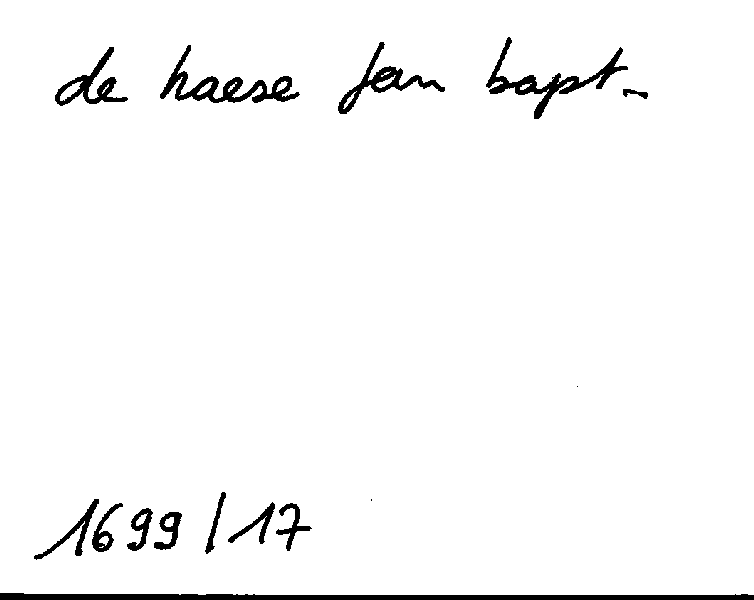 de haese Jan bapt.
1699/17